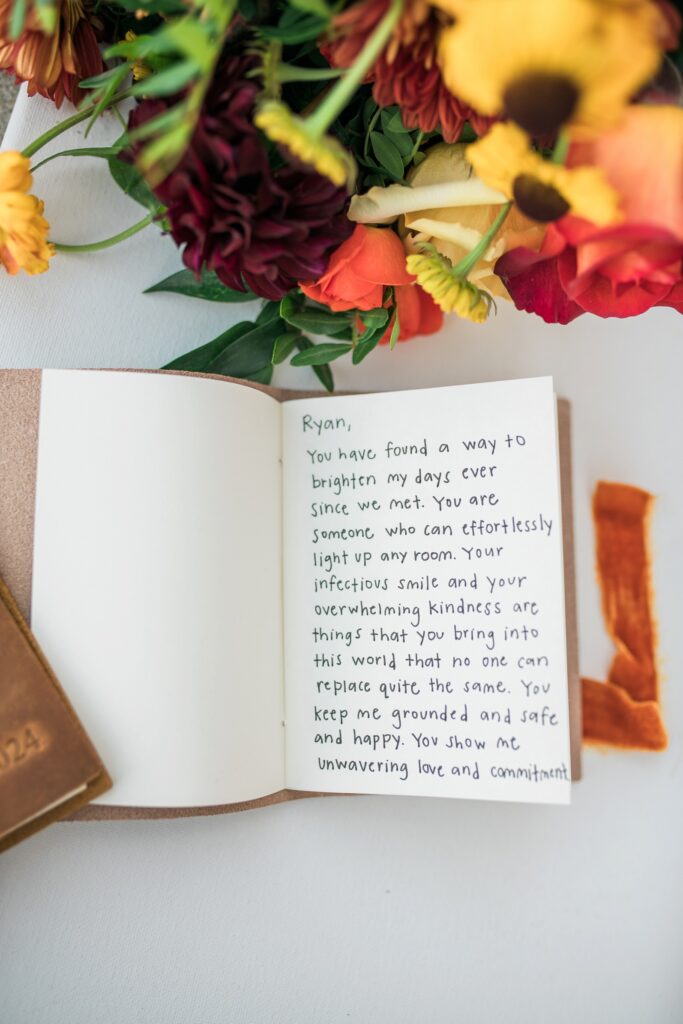 Ryan,
You have found a way to
brighten my days ever
since we met. You are
someone who can effortlessly
light up any room. Your
infectious smile and your
overwhelming kindness are
things that you bring into
this world that no one can
replace quite the same. You
keep me grounded and safe
and happy. You show me
unwavering love and commitment
2024